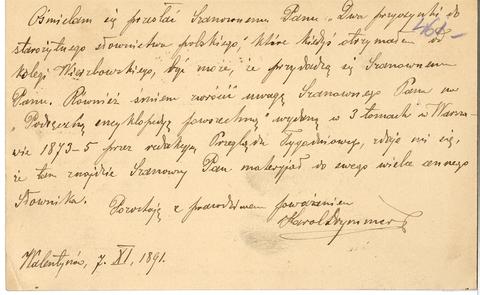 Ośmielam się przesłać Szanownemu Panu „Dwa przyczynki do
starożytnego słownictwa polskiego", które kiedyś otrzymałem od
kolegi Wierzbowskiego, być może, że przydadzą się Szanownemu
Panu. Również śmiem zwrócić uwagę Szanownego Pana na
„Podręczną encyklopedję powszechną" wydaną w 3 tomach w Warsza-
wie 1873-5 przez redakcyę Przeglądu Tygodniowego, zdaje mi się,
że tam znajdzie Szanowny Pan materyjał do swego wielce cennego
Słownika.
Pozostaję z prawdziwem poważaniem
Karol Dymmer
Walentynów, 7. XI, 1891.